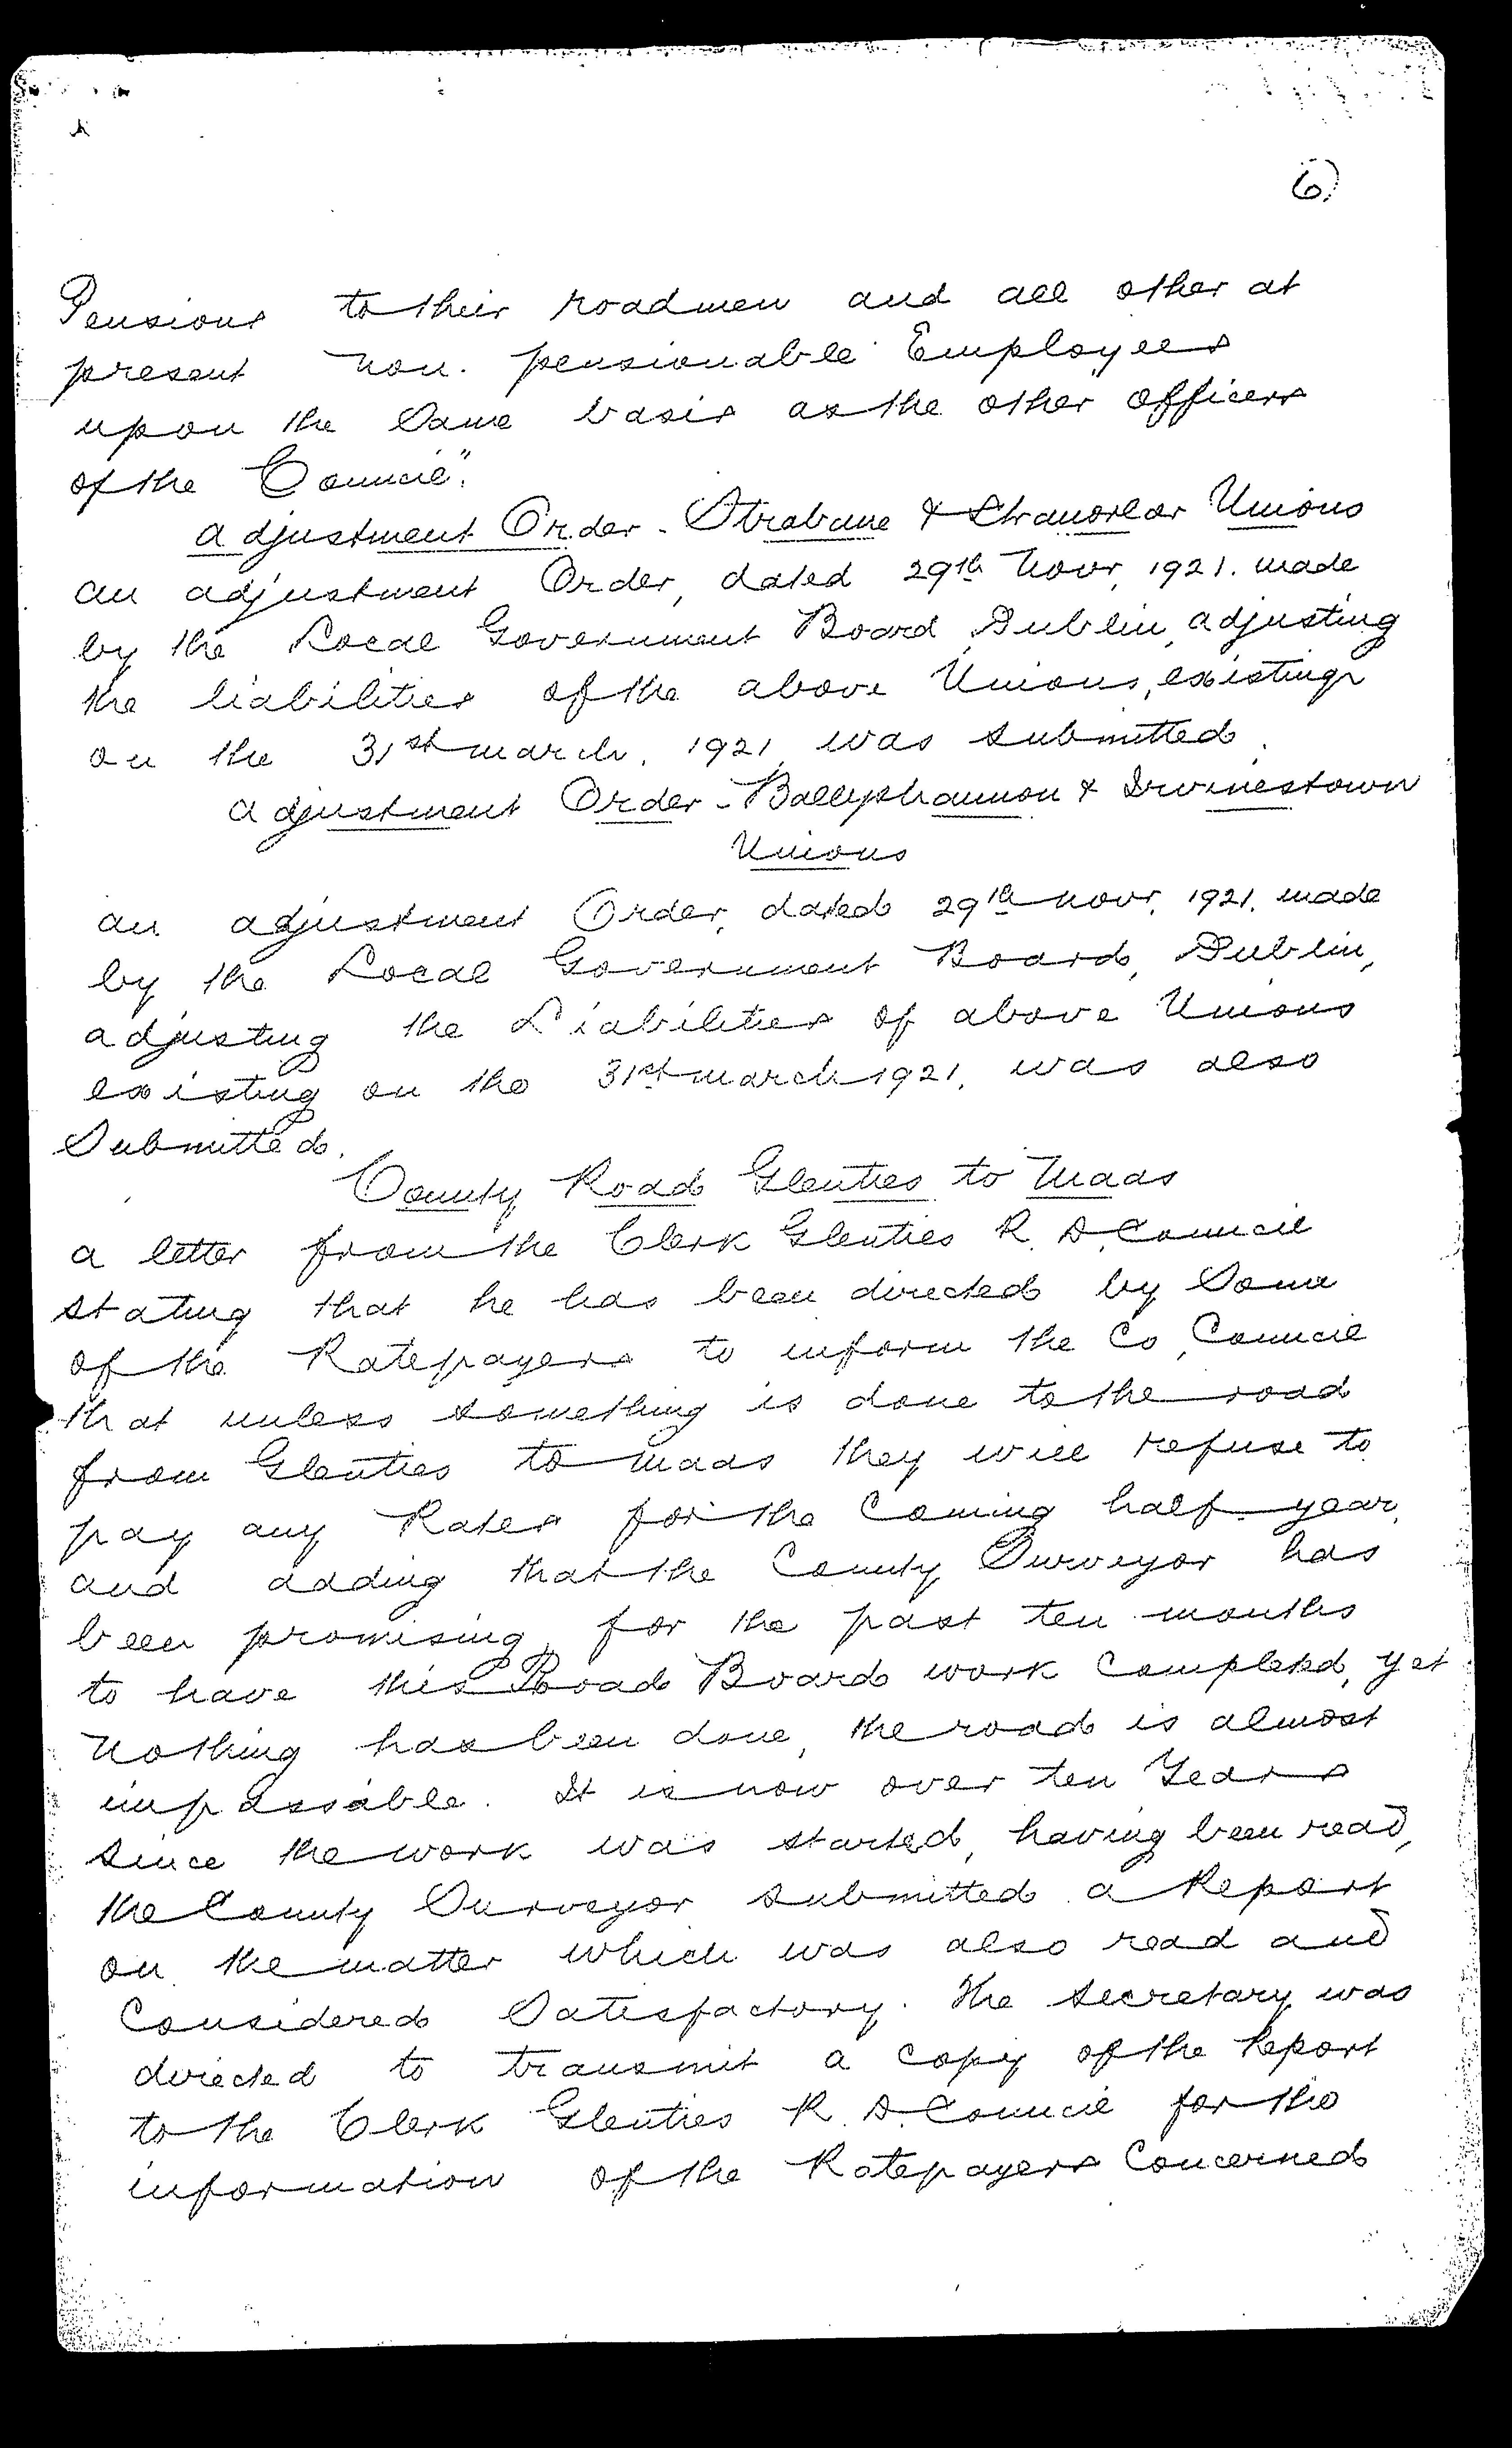 6)
Pensions to their roadmen and all other at
present non. pensionable Employees
upon the Same basis as the other officers
of the Council".
Adjustment Order - Strabane & Stranorlar Unions
An adjustment Order, dated 29th Novr, 1921. made
by the Local Government Board, Dublin, adjusting
the liabilities of the above Unions, existing
on the 31st March, 1921, was submitted.
Adjustment Order - Ballyshannon & Irvinestown
Unions
An adjustment Order, dated 29th Novr, 1921. made
by the Local Government Board, Dublin,
adjusting the Liabilities of above Unions
existing on the 31st March 1921, was also
Submitted.
County Road Glenties to Maas
A letter from the Clerk Glenties R. D. Council
stating that he has been directed by Some
of the Ratepayers to inform the Co, Council
that unless something is done to the road
from Glenties to Maas they will refuse to
pay any Rates for the Coming half-year,
and adding that the County Surveyor has
been promising, for the past ten months
to have this Road Board work Completed, yet
nothing has been done, the road is almost
impassable. It is now over ten Years
since the work was started, having been read,
the County Surveyor submitted a Report
on the matter which was also read and
Considered Satisfactory. The Secretary was
directed to transmit a copy of the Report
to the Clerk Glenties R. D. Council for the
information of the Ratepayers Concerned